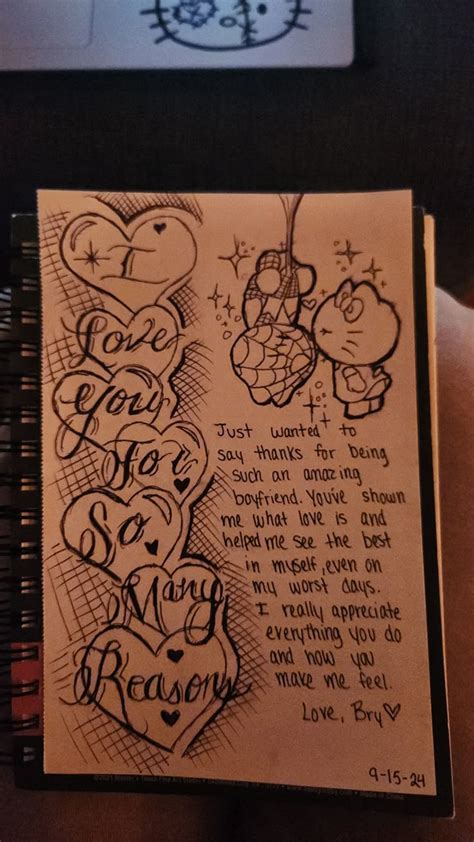 I
Love
You
For
So
Many
Reasons
Just wanted to
say thanks for being
such an amazing
boyfriend. You've shown
me what love is and
helped me see the best
in myself, even on
my worst days.
I really appreciate
everything you do
and how you
make me feel.
Love, Bry♡
9-15-24